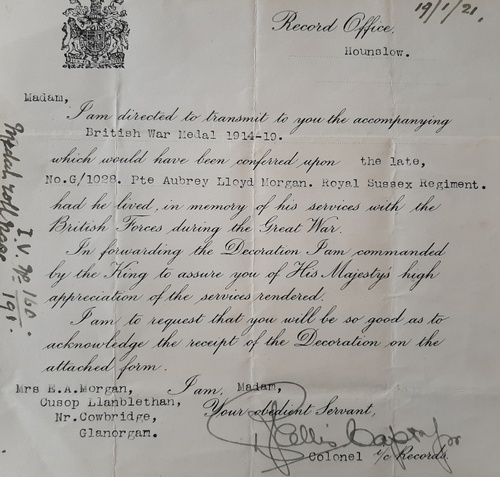 19/1/21.
Record Office,
Hounslow.
Madam,
I am directed to transmit to you the accompanying
British War Medal 1914-19.
which would have been conferred upon the late,
No.G/1028. Pte Aubrey Lloyd Morgan. Royal Sussex Regiment.
had he lived, in memory of his services with the
British Forces during the Great War.
In forwarding the Decoration I am commanded
by the King to assure you of His Majesty's high
appreciation of the services rendered.
I am to request that you will be so good as to
acknowledge the receipt of the Decoration on the
attached form.
I am, Madam,
Your obedient Servant,
Colonel i/c Records.
Mrs E.A.Morgan,
Cusop Llanblethan,
Nr.Cowbridge,
Glanorgam.
Medal roll page